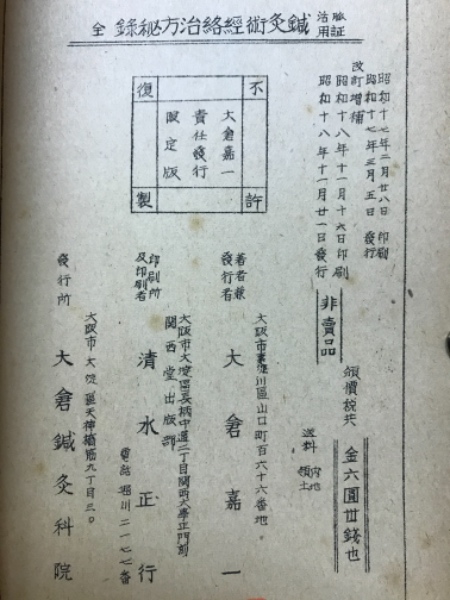 臨証活用 鍼灸術經絡治方秘録 全
昭和十七年二月廿八日 印刷
昭和十七年三月五日 發行
改訂増補
昭和十八年十一月十六日印刷
昭和十八年十一月廿一日發行
非賣品
頒價税共 金六圓丗錢也
送料 内地 領土
不許復製
大倉嘉一
責任發行
限定版
大阪市東淀川區山口町百六十六番地。
著者兼發行者 大倉嘉一
大阪市大淀區長柄中通二丁目関西大學正門前
関西堂出版部
印刷所及印刷者 清水正行
電話堀川二一七七番
大阪市大淀區天神橋筋九丁目三。
發行所 大倉鍼灸科院